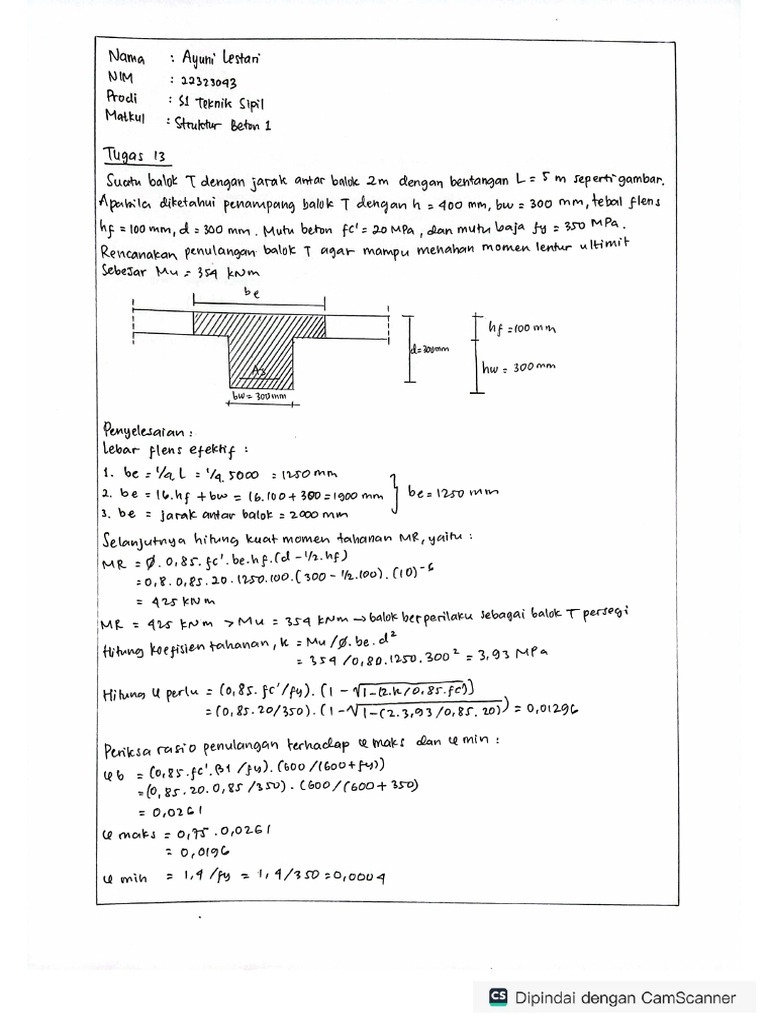 Nama : Ayuni Lestari
NIM : 22323043
Prodi : S1 Teknik Sipil
Matkul : Struktur Beton 1
Tugas 13
Suatu balok T dengan jarak antar balok 2m dengan bentangan L = 5 m seperti gambar.
Apabila diketahui penampang balok T dengan h = 400 mm, bw = 300 mm, tebal flens
hf = 100 mm, d = 300 mm. Mutu beton fc' = 20 MPa, dan mutu baja fy = 350 MPa.
Rencanakan penulangan balok T agar mampu menahan momen lentur ultimit
Sebesar Mu = 354 kNm
be
hf = 100 mm
d = 300mm
hw = 300 mm
As
bw = 300mm
Penyelesaian :
Lebar flens efektif :
1. be = 1/4 L = 1/4. 5000 = 1250 mm
2. be = 16.hf + bw = 16.100 + 300 = 1900 mm } be = 1250 mm
3. be = jarak antar balok = 2000 mm
Selanjutnya hitung kuat momen tahanan MR, yaitu :
MR = Ø. 0,85. fc'. be. hf. (d - 1/2. hf)
= 0,8. 0,85. 20. 1250. 100. (300 - 1/2. 100). (10)⁻⁶
= 425 kNm
MR = 425 kNm > Mu = 354 kNm → balok berperilaku sebagai balok T persegi
Hitung koefisien tahanan, k = Mu / Ø. be. d²
= 354 / 0,80. 1250. 300² = 3,93 MPa
Hitung φ perlu = (0,85. fc'/fy). (1 - √1-(2.k/0,85. fc'))
= (0,85. 20/350). (1 - √1-(2. 3,93 / 0,85. 20)) = 0,01296
Periksa rasio penulangan terhadap φ maks dan φ min :
φ b = (0,85. fc'. β1 / fy). (600 / (600 + fy))
= (0,85. 20. 0,85 / 350) . (600 / (600 + 350)
= 0,0261
φ maks = 0,75 . 0,0261
= 0,0196
φ min = 1,4 / fy = 1,4 / 350 = 0,0004
CS Dipindai dengan CamScanner